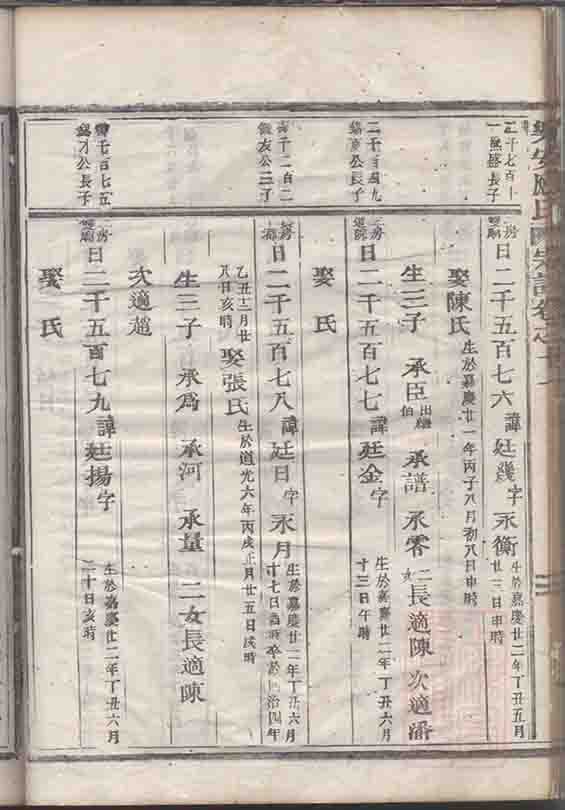 應氏宗譜卷之十
二千七百十
長子
房
曰二千五百七六諱廷幾字永衡
生於嘉慶廿二年丁丑五月
廿三日申時
娶陳氏
生於嘉慶廿一年丙子八月初八日申時
生三子 承臣
出繼
伯
承譜 承零
二女
長適陳 次適潘
二千百四九
公長子
房
曰二千五百七七諱廷金字
生於嘉慶廿二年丁丑六月
十三日午時
娶 氏
千二百二
友公三子
房
曰二千五百七八諱廷日字永月
生於嘉慶廿二年丁丑六月
十七日酉時卒於同治四年
乙丑十二月廿
八日亥時
娶張氏
生於道光六年丙戌正月廿五日戌時
生三子 承為 承河 承量 二女長適陳
次適趙
千百七五
才公長子
房
曰二千五百七九諱廷揚字
生於嘉慶廿二年丁丑六月
二十日亥時
娶 氏